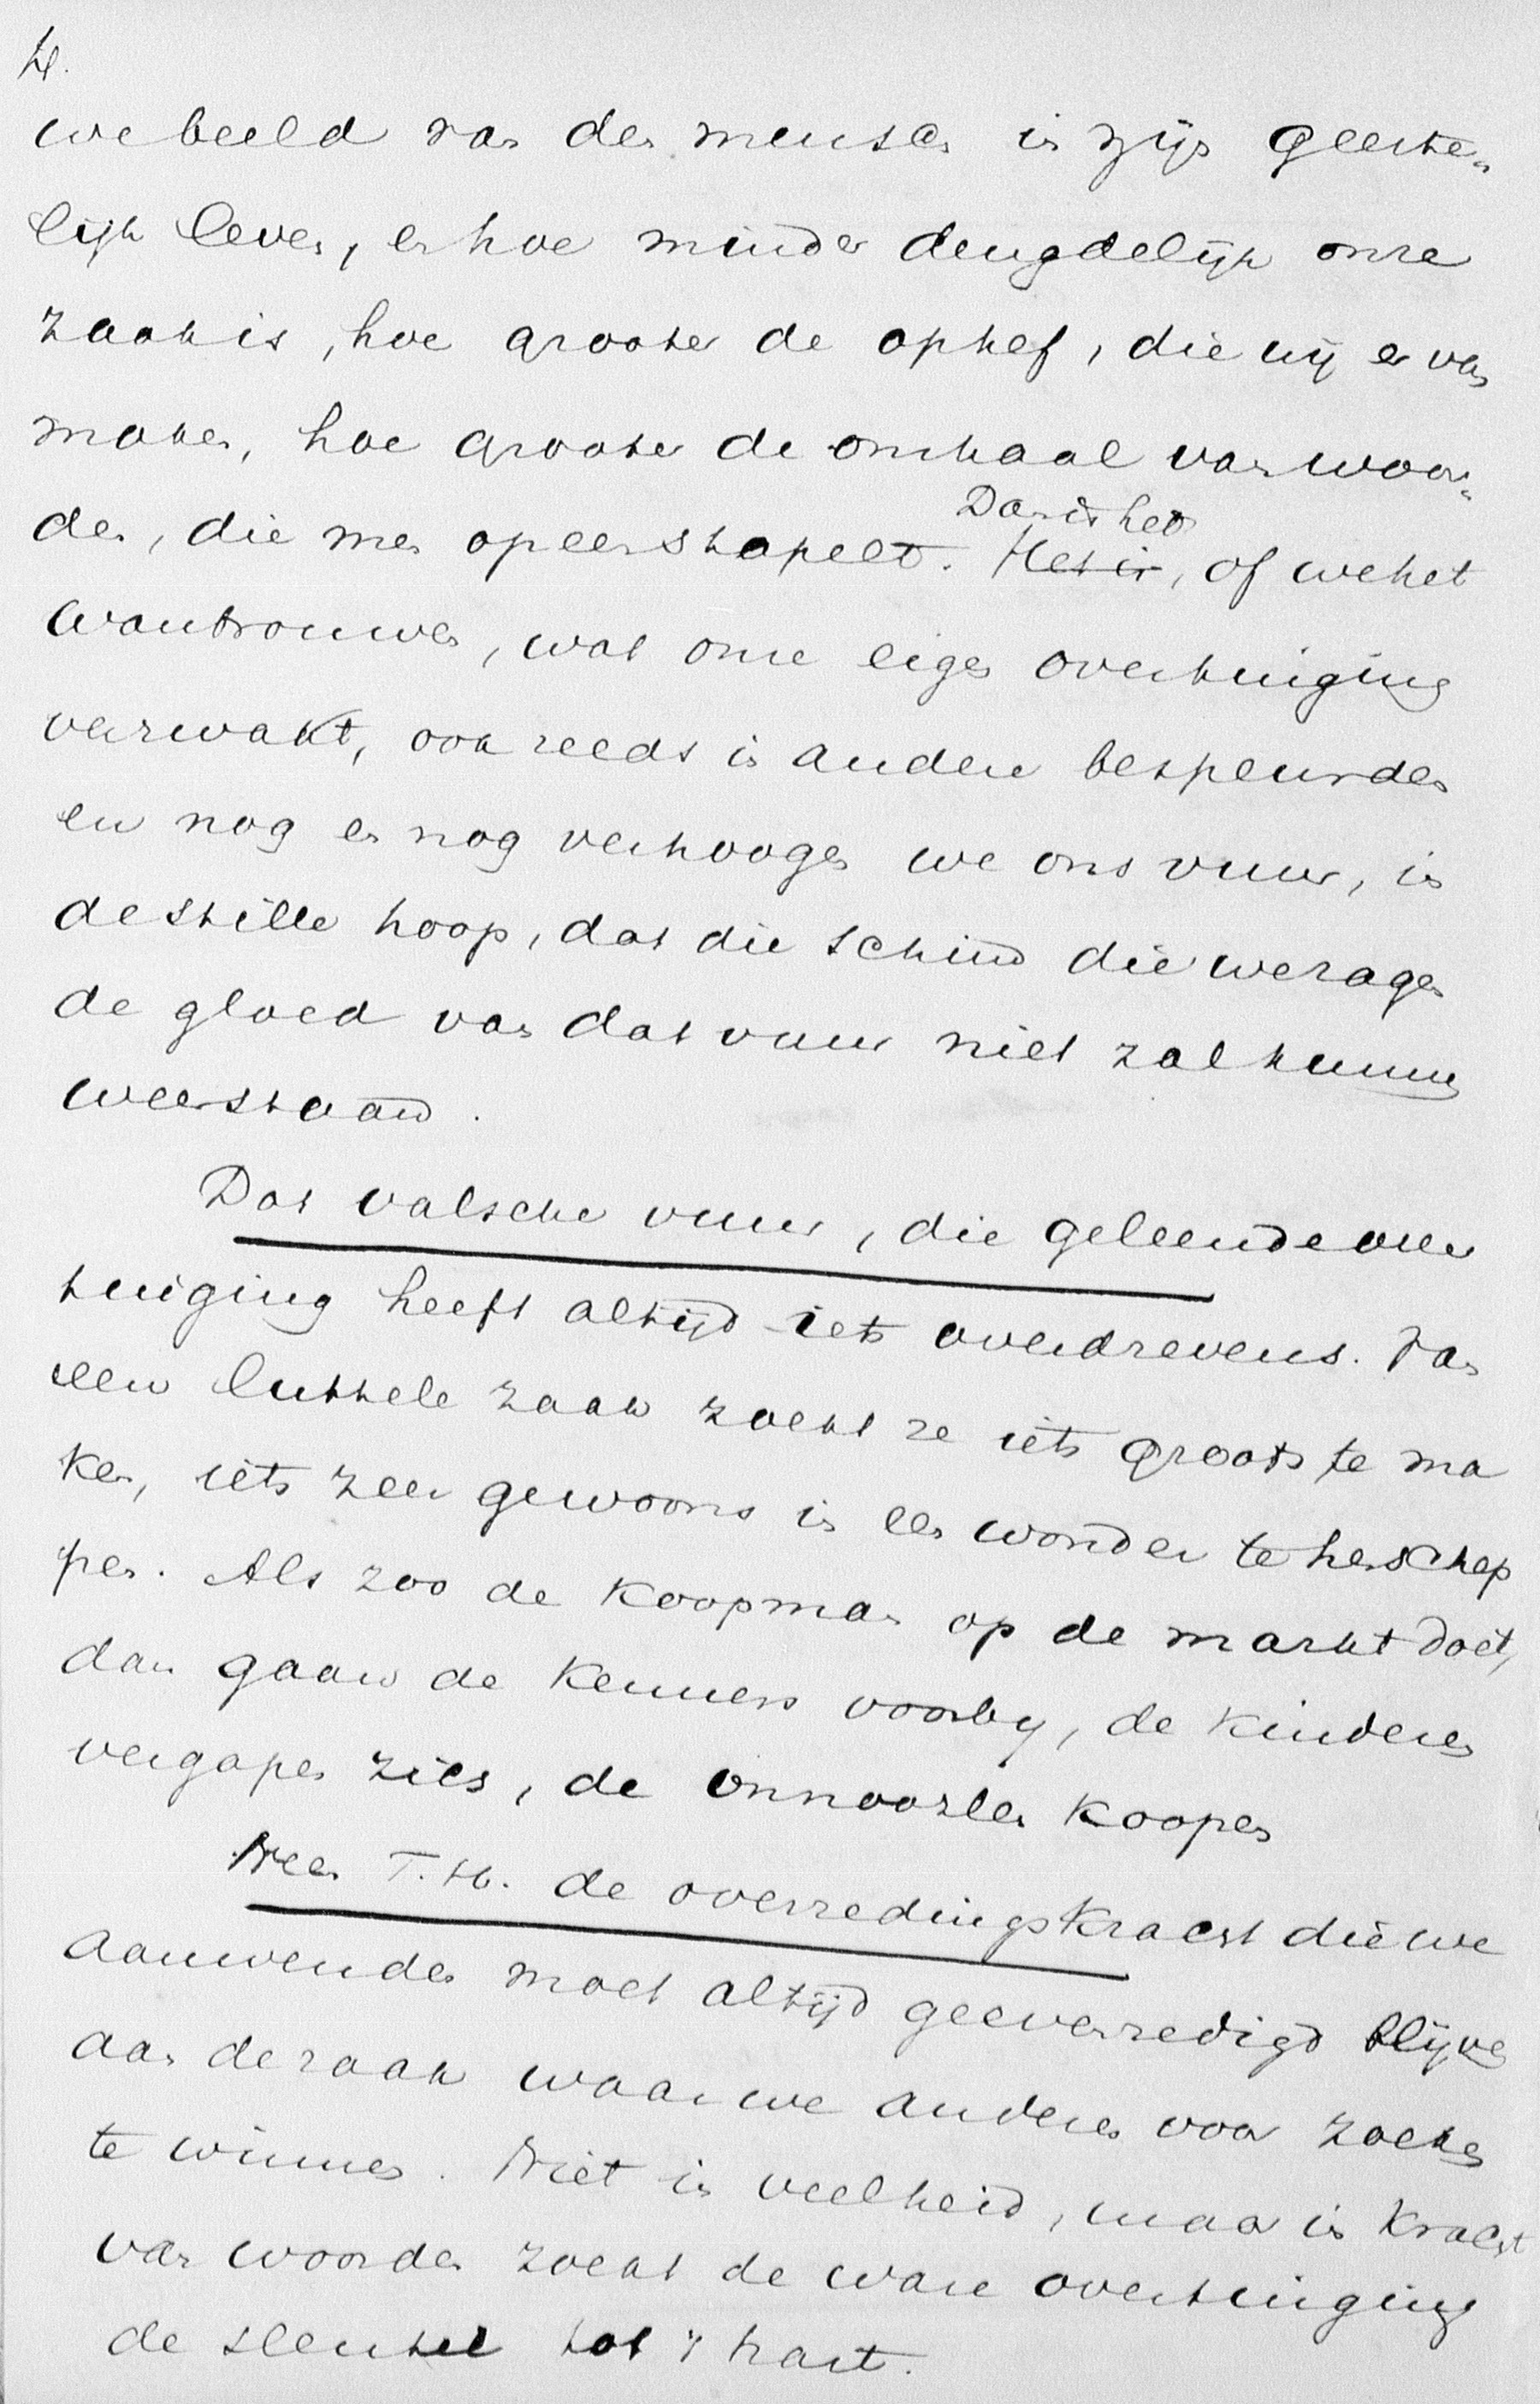 4.
we beeld van den mensch in zijn geeste-
lijk leven, en hoe minder deugdelijk onze
zaak is, hoe grooter de ophef, die wij er van
maken, hoe grooter de omhaal van woor-
den, die men opeenstapelt. Dan is het
Het is, of we het
wantrouwen, wat onze eigen overtuiging
verzwakt, ook reeds in andere bespeurden
en nog en nog verhoogen we ons vuur, in
de stille hoop, dat die schijn die we zagen
de gloed van dat vuur niet zal kunnen
weerstaan.
Dat valsche vuur, die geleende over
tuiging heeft altijd iets overdrevens. Van
een luttele zaak zoekt ze iets groots te ma
ken, iets zeer gewoons in een wonder te herschep
pen. Als zoo de koopman op de markt doet,
dan gaan de kenners voorby, de kinderen
vergapen zich, de onnoozlen koopen
Neen T.H. de overredingskracht die we
aanwenden moet altijd geevenredigd blijven
aan de zaak waar we anderen voor zoeken
te winnen. Niet in veelheid, maar in kracht
van woorden zoekt de ware overtuiging
de sleutel tot 't hart.